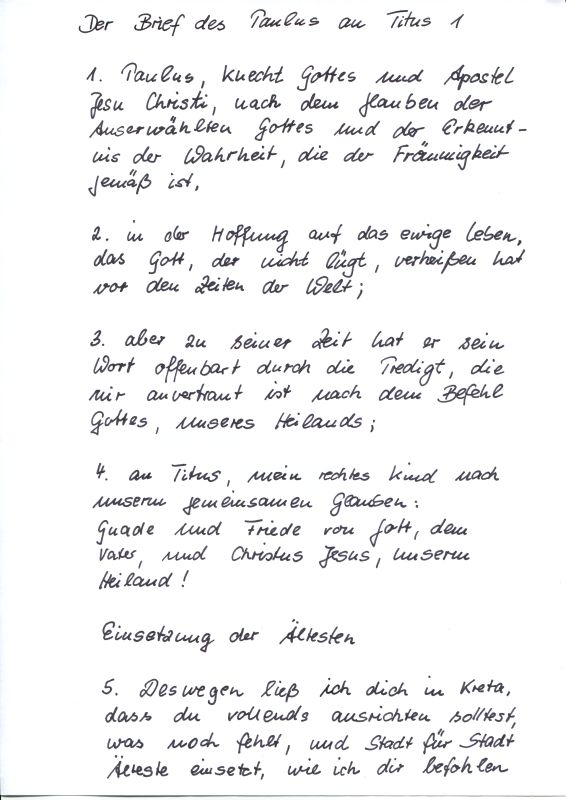 Der Brief des Paulus an Titus 1
1. Paulus, Knecht Gottes und Apostel
Jesu Christi, nach dem Glauben der
Auserwählten Gottes und der Erkennt-
nis der Wahrheit, die der Frömmigkeit
gemäß ist,
2. in der Hoffnung auf das ewige Leben,
das Gott, der nicht lügt, verheißen hat
vor den Zeiten der Welt;
3. aber zu seiner Zeit hat er sein
Wort offenbart durch die Predigt, die
mir anvertraut ist nach dem Befehl
Gottes, unseres Heilands;
4. an Titus, mein rechtes Kind nach
unserm gemeinsamen Glauben:
Gnade und Friede von Gott, dem
Vater, und Christus Jesus, unserm
Heiland!
Einsetzung der Ältesten
5. Deswegen ließ ich dich in Kreta,
dass du vollends ausrichten solltest,
was noch fehlt, und Stadt für Stadt
Älteste einsetzt, wie ich dir befohlen